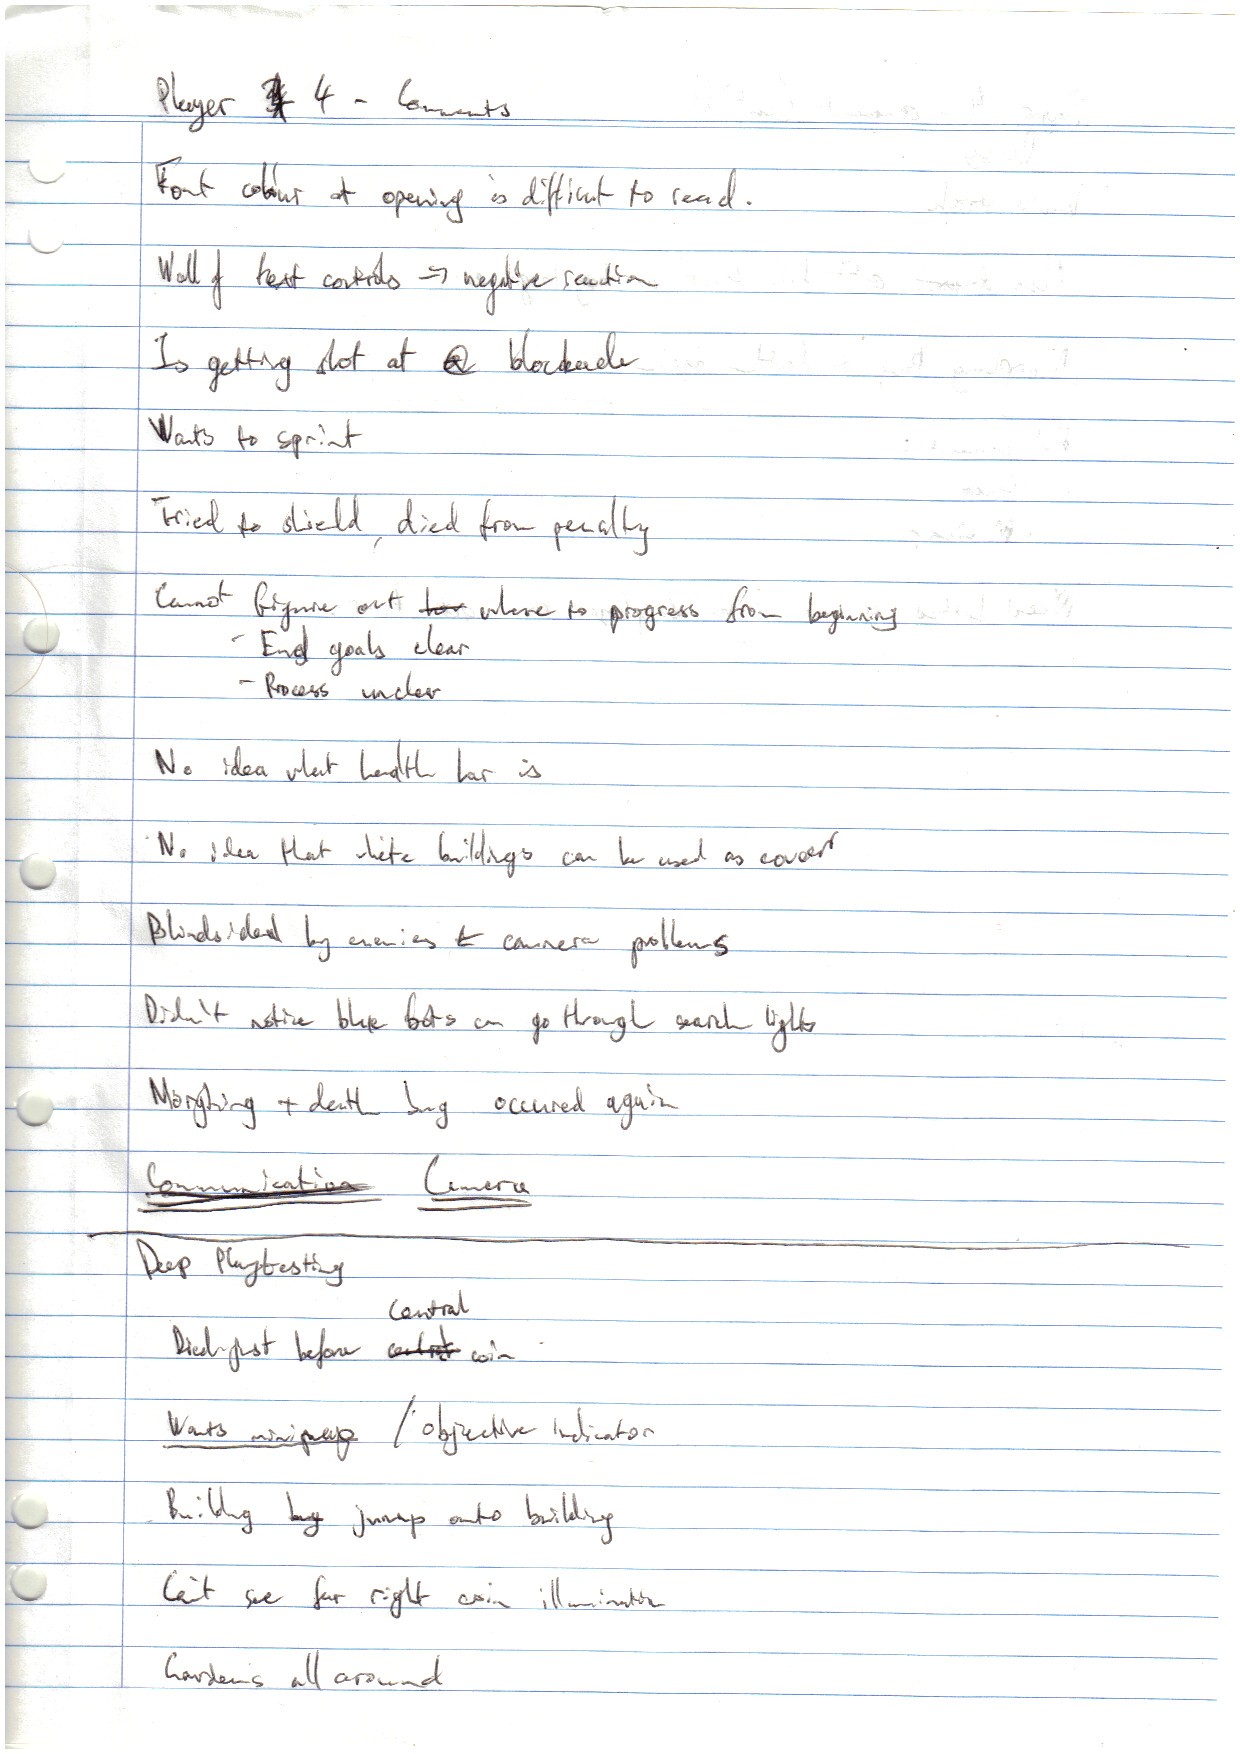 Player 4 - Comments
Font colour at opening is difficult to read.
Wall of text controls => negative reaction
Is getting shot at @ blockade
Wants to sprint
Tried to shield, died from penalty
Cannot figure out how where to progress from beginning
- End goals clear
- Process unclear
No idea what health bar is
No idea that white buildings can be used as cover
Blindsided by enemies & camera problems
Didn't notice blue bots can go through search lights
Morphing + death bug occured again
Communication Camera
Deep Playtesting
central
Died just before coin
Wants minimap / objective indicator
Building bug jump onto building
Can't see far right coin illumination
Gardens all around